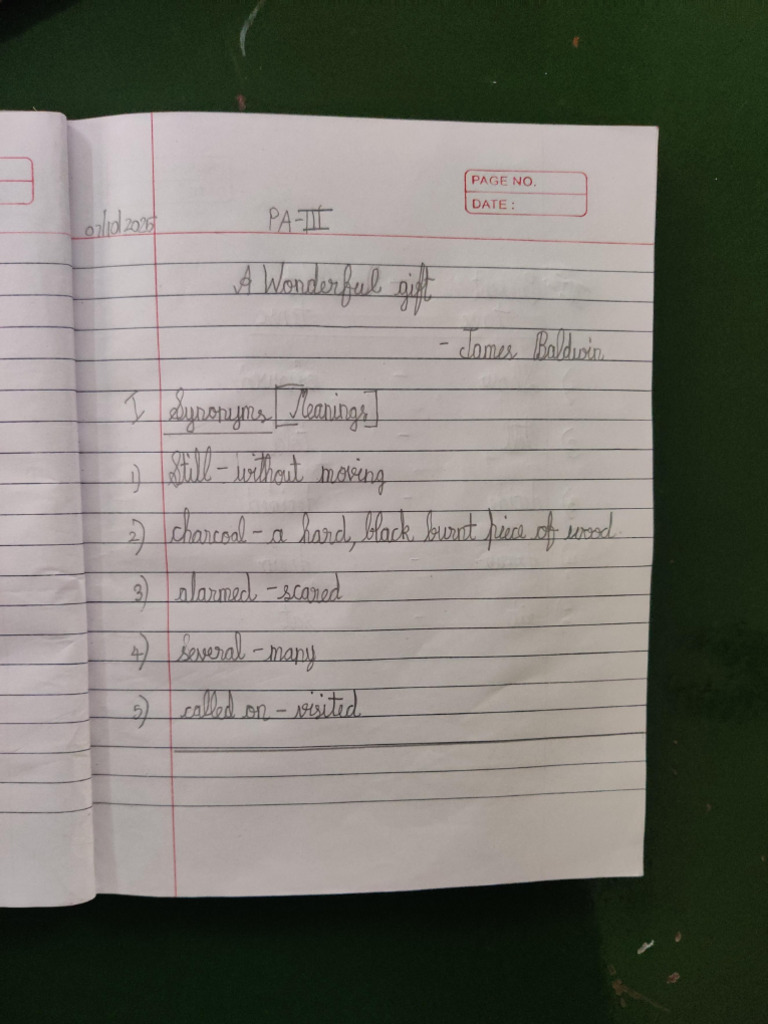 PAGE NO.
DATE :
07/10/2025 PA-III
A Wonderful gift
- James Baldwin
I Synonyms [Meanings]
1) Still - without moving
2) charcoal - a hard, black burnt piece of wood.
3) alarmed - scared
4) several - many
5) called on - visited